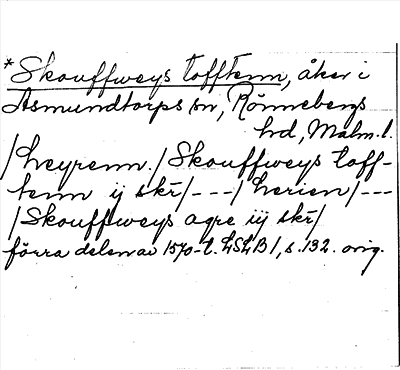 *Skouffweys tofftenn, åker i
Asmundtorps sn, Rönnebergs
hd, Malm. l.
/heyrenn./ Skouffweys toff-
tenn ij skr̄/---/herien/---
/Skouffweys agre iij skr̄/
förra delen av 1570-t. LSLB 1, s. 132. orig.